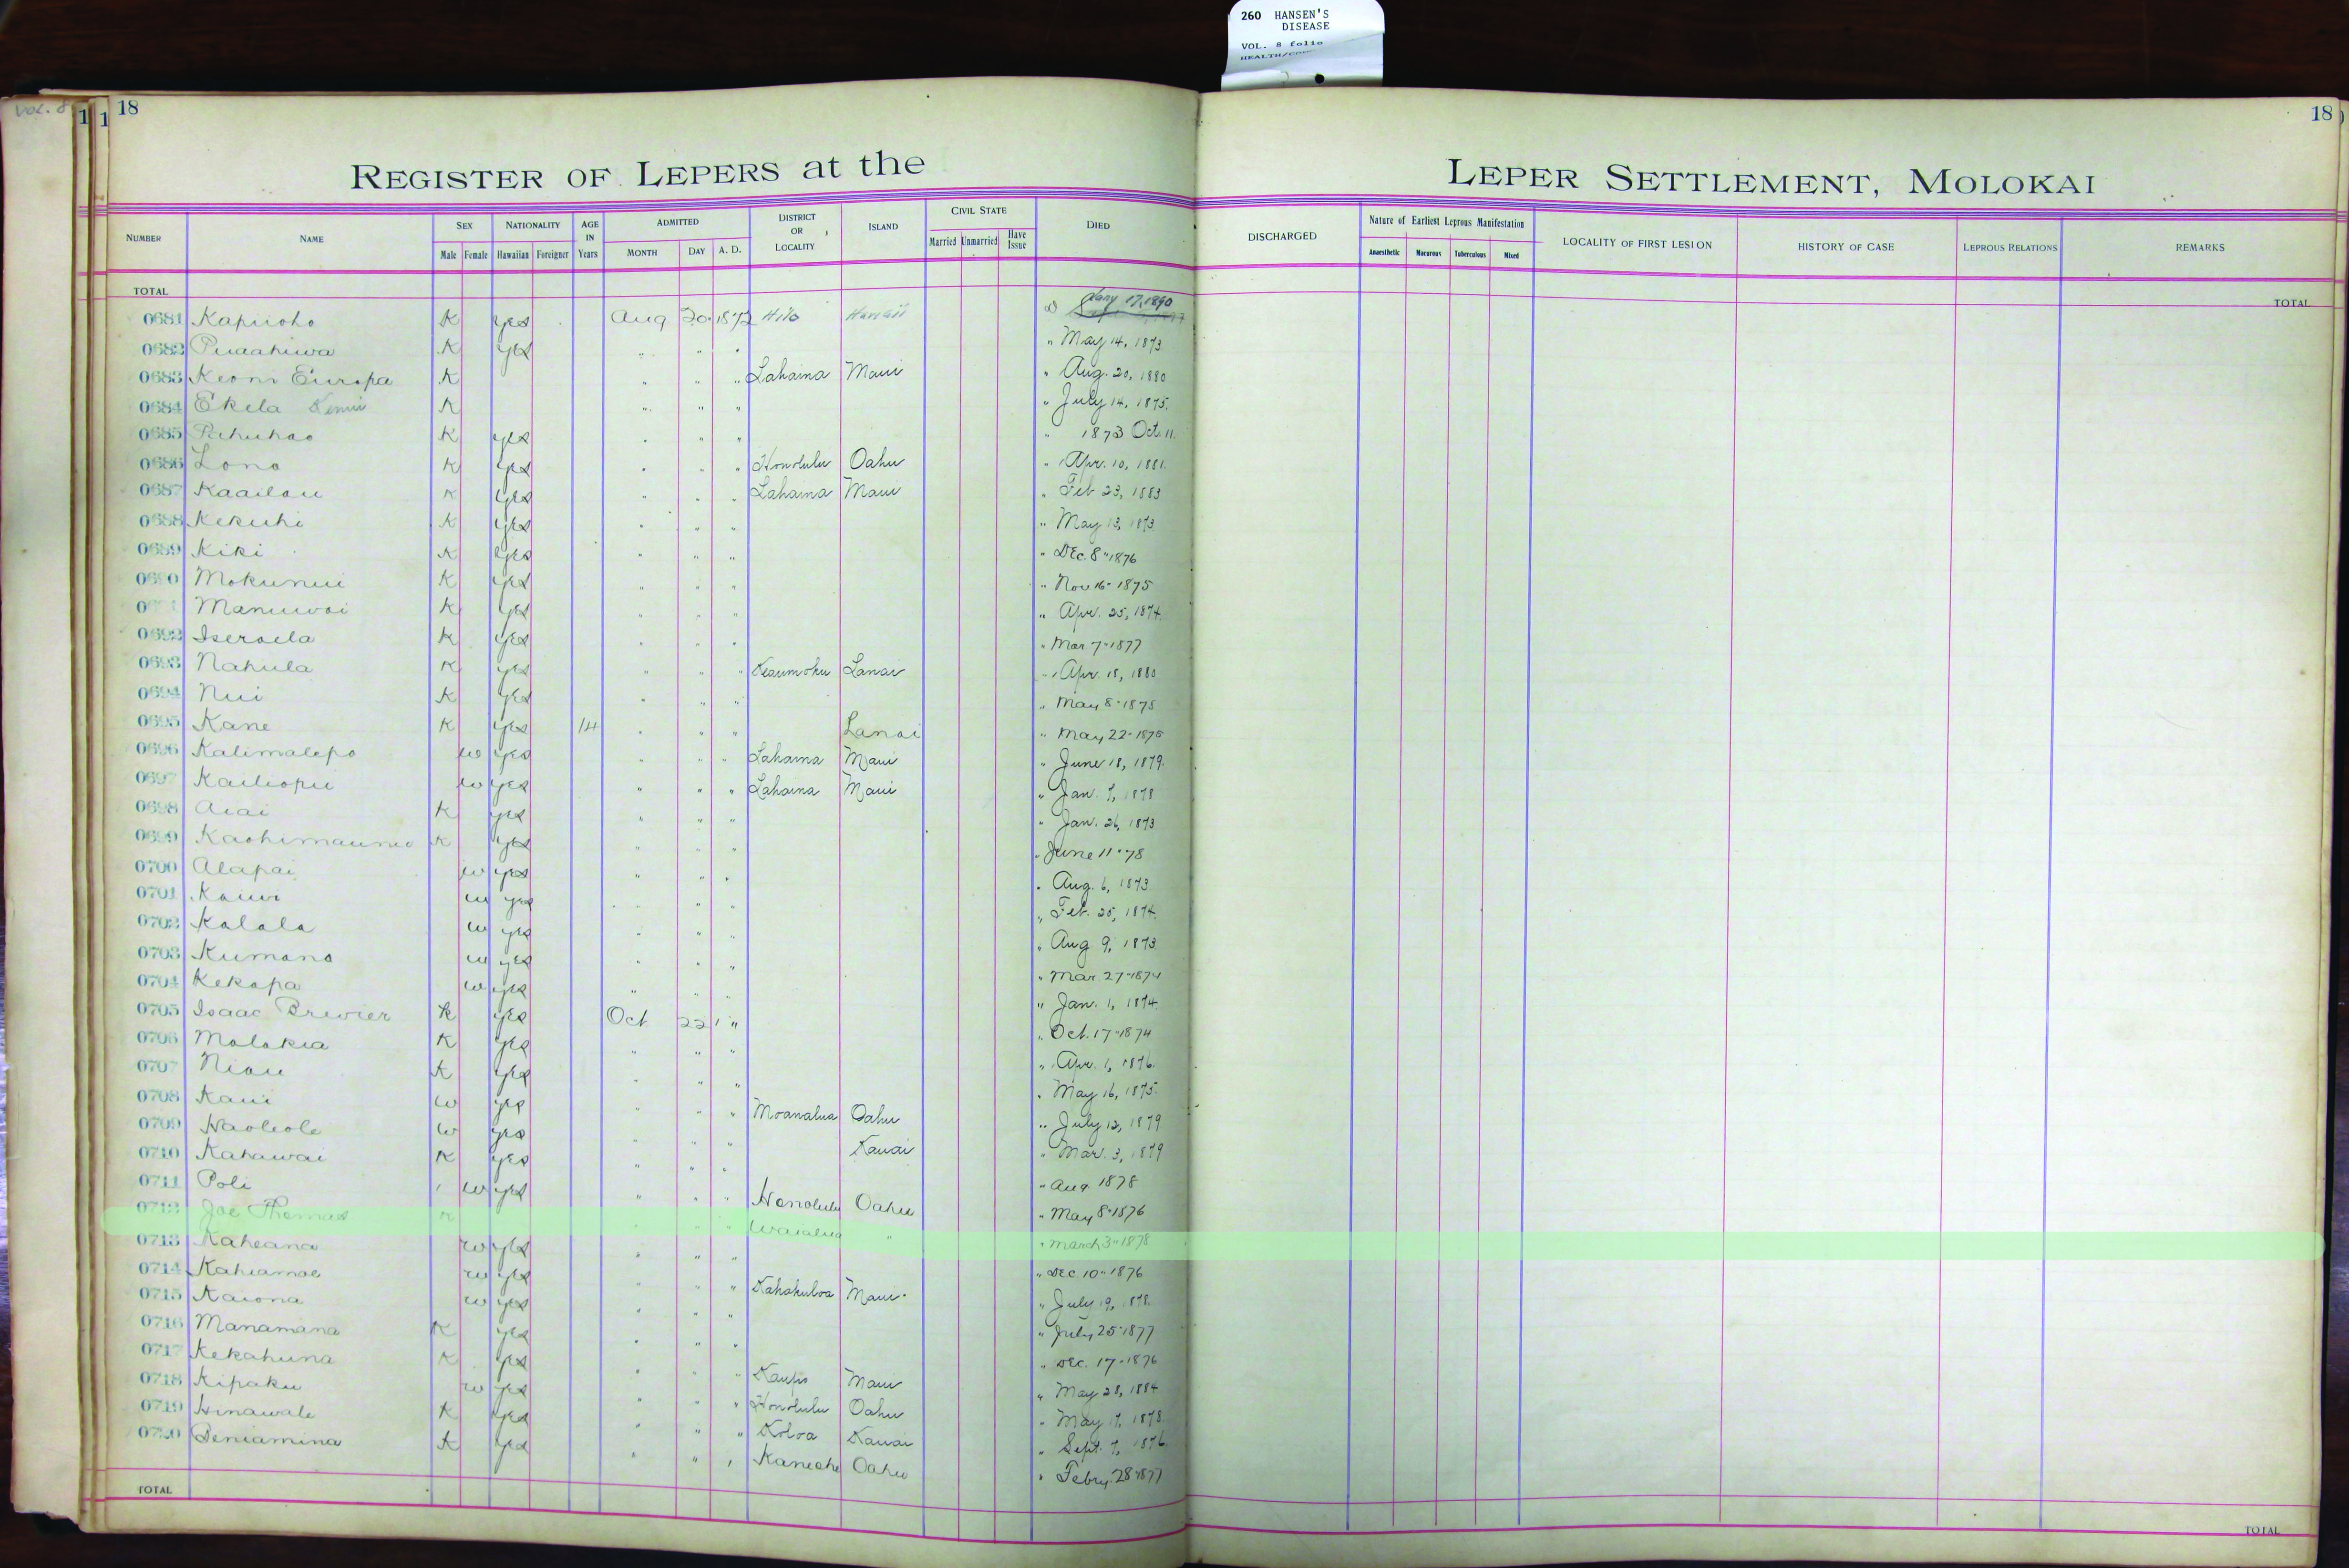 260 HANSEN'S
DISEASE
VOL. 8 folio
VOL. 8
18
18
REGISTER OF LEPERS at the LEPER SETTLEMENT, MOLOKAI
NUMBER NAME SEX Male Female NATIONALITY Hawaiian Foreigner AGE IN Years ADMITTED MONTH DAY A. D. DISTRICT OR LOCALITY ISLAND CIVIL STATE Married Unmarried Have Issue DIED DISCHARGED Nature of Earliest Leprous Manifestation Anaesthetic Macurous Tuberculous Mixed LOCALITY OF FIRST LESION HISTORY OF CASE LEPROUS RELATIONS REMARKS
TOTAL TOTAL
0681 Kapiioho K yes Aug 20 1872 Hilo Hawaii D Jany 17, 1890
0682 Puaahiwa K yes " " " " May 14, 1873
0683 Keoni Europa K " " " Lahaina Maui " Aug. 20, 1880
0684 Ekela K " " " " July 14, 1875.
0685 Pahuhao K yes " " " " 1873 Oct. 11.
0686 Lono K yes " " " Honolulu Oahu " Apr. 10, 1881.
0687 Kaailau K yes " " " Lahaina Maui " Feb 23, 1883
0688 Kekuhi K yes " " " " May 13, 1873
0689 Kiki K yes " " " " Dec. 8" 1876
0690 Mokunui K yes " " " " Nov 16- 1875
Manuwai K yes " " " " Apr. 25, 1874.
0692 Iseraela K yes " " " " Mar 7" 1877
0693 Nahula K yes " " " Keaumoku Lanai " Apr. 18, 1880
0694 Nui K yes " " " " May 8" 1875
0695 Kane K yes 14 " " " Lanai " May 22- 1875
0696 Kalimalepo w yes " " " Lahaina Maui " June 18, 1879.
0697 Kailiopu w yes " " " Lahaina Maui " Jan. 7, 1878
0698 Aiai K yes " " " " Jan. 26, 1873
0699 K yes " " " " June 11" 78
0700 Alapai w yes " " " " Aug. 6, 1873
0701 Kauwi w yes " " " " Feb. 25, 1874.
0702 Kalala w yes " " " " Aug 9, 1873.
0703 Kumano w yes " " " " Mar 27" 1874
0704 Kekapa w yes " " " " Jan. 1, 1874.
0705 Isaac Brewier K yes Oct 22 " " Oct. 17" 1874
0706 Molokia K yes " " " " Apr. 1, 1876.
0707 Niau K yes " " " " May 16, 1875.
0708 Kaui w yes " " " Moanalua Oahu " July 12, 1879
0709 Haoleole w yes " " " Kauai " Mar. 3, 1879
0710 Kahawai K yes " " " " Aug 1878
0711 Poli w yes " " " Honolulu Oahu " May 8" 1876
0712 Joe Thomas K " " " Waialua " " March 3" 1878
0713 Kaheana w yes " " " " Dec 10" 1876
0714 Kahiamoe w yes " " " Kahakuloa Maui " July 19, 1878.
0715 Kaiona w yes " " " " July 25" 1877
0716 Manamana K yes " " " " Dec. 17- 1876
0717 Kekahuna K yes " " " Kaupo Maui " May 28, 1884
0718 Kipaku w yes " " " Honolulu Oahu " May 17, 1878.
0719 Hinawale K yes " " " Koloa Kauai " Sept. 7, 1876.
0720 Beniamina K yes " " " Kaneohe Oahu " Febry. 28" 1877
TOTAL TOTAL